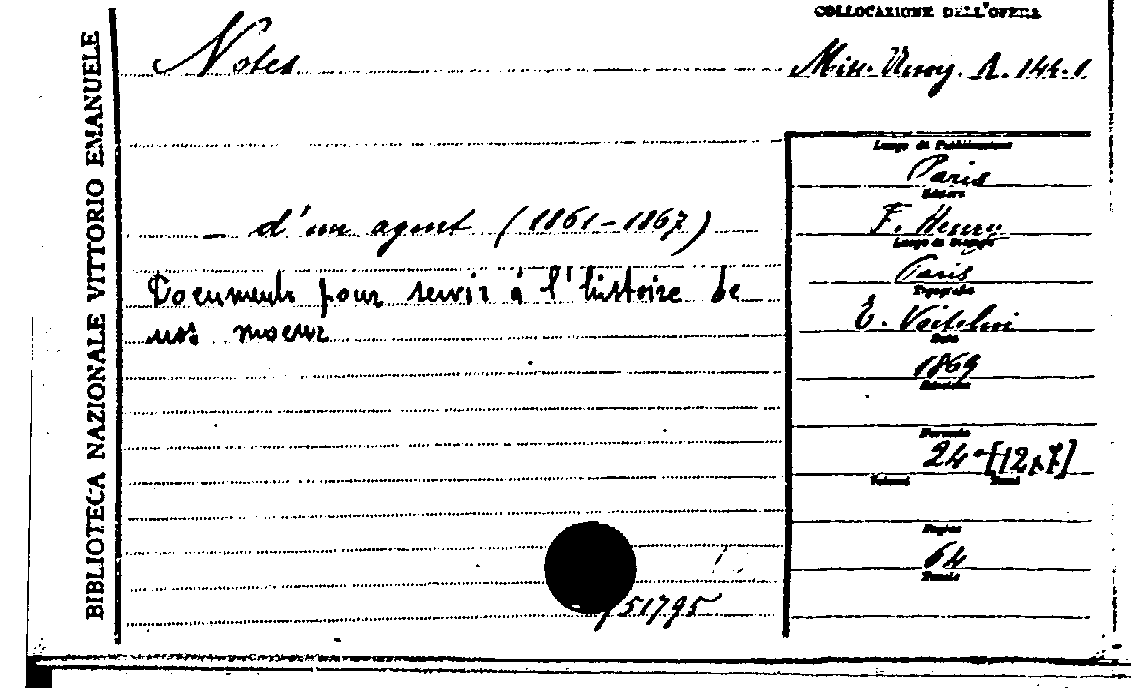 BIBLIOTECA NAZIONALE VITTORIO EMANUELE
COLLOCAZIONE DELL'OPERA
Notes
Misc. A. 144.1
_ d'un agent (1861-1867)
Documents pour servir à l'histoire de
nos moeurs
Luogo di Pubblicazione
Paris
Editore
F. Henry
Luogo di Stampa
Paris
Tipografia
E. Voitelain
Data
1869
Edizione
Formato
24° [12x7]
Volumi Tomi
Pagine
64
Tavole
51795